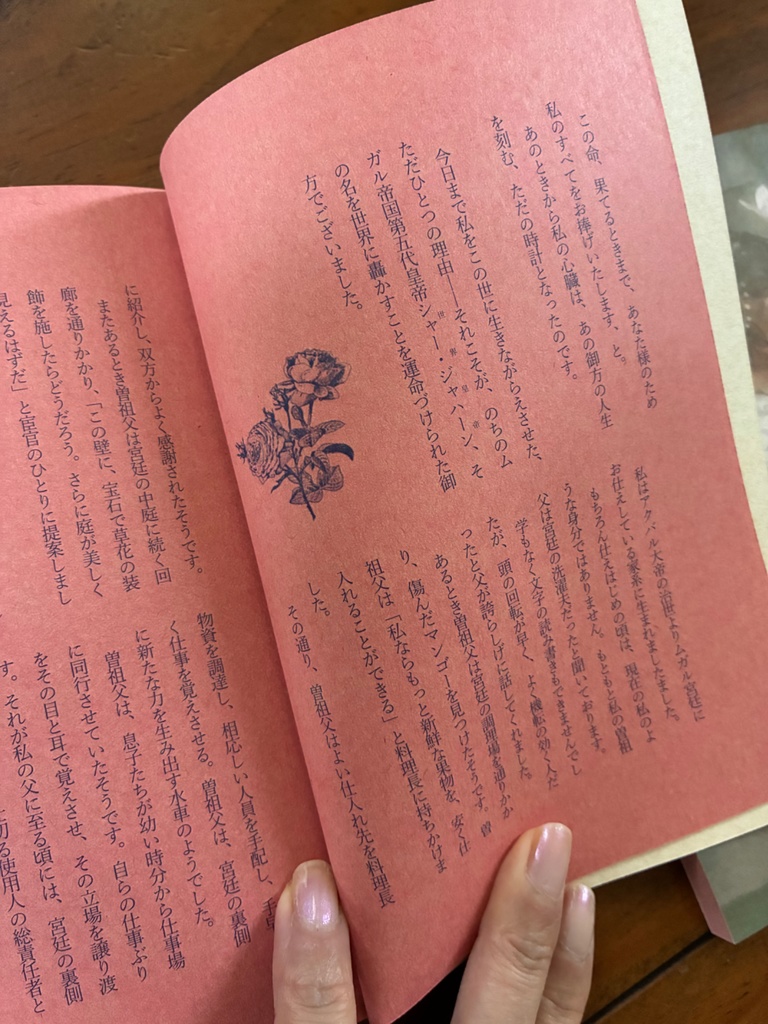 この命、果てるときまで、あなた様のため
私のすべてをお捧げいたします、と。
あのときから私の心臓は、あの御方の人生
を刻む、ただの時計となったのです。
今日まで私をこの世に生きながらえさせた、
ただひとつの理由――それこそが、のちのム
ガル帝国第五代皇帝シャー・ジャハーン、そ
の名を世界に轟かすことを運命づけられた御
方でございました。
私はアクバル大帝の治世よりムガル宮廷に
お仕えしている家系に生まれましたました。
もちろん仕えはじめの頃は、現在の私のよ
うな身分ではありません。もともと私の曽祖
父は宮廷の洗濯夫だったと聞いております。
学もなく文字の読み書きもできませんでし
たが、頭の回転が早く、よく機転の効く人だ
ったと父が誇らしげに話してくれました。
あるとき曽祖父は宮廷の調理場を通りかか
り、傷んだマンゴーを見つけたそうです。曽
祖父は「私ならもっと新鮮な果物を、安く仕
入れることができる」と料理長に持ちかけま
した。
その通り、曽祖父はよい仕入れ先を料理長
に紹介し、双方からよく感謝されたそうです。
またあるとき曽祖父は宮廷の中庭に続く回
廊を通りかかり、「この壁に、宝石で草花の装
飾を施したらどうだろう。さらに庭が美しく
見えるはずだ」と宦官のひとりに提案しまし
物資を調達し、相応しい人員を手配し、
く仕事を覚えさせる。曽祖父は、宮廷の裏側
に新たな力を生み出す水車のようでした。
曽祖父は、息子たちが幼い時分から仕事場
に同行させていたそうです。自らの仕事ぶり
をその目と耳で覚えさせ、その立場を譲り渡
す。それが私の父に至る頃には、宮廷の裏側
切る使用人の総責任者と